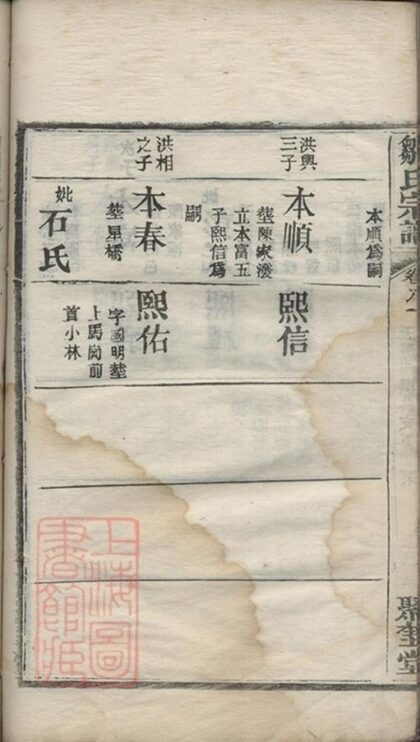 氏宗譜
聚奎堂
本順爲嗣
洪興
三子
本順
塟陳家潑
立本富五
子熙信爲
嗣
熙信
洪相
之子
本春
塟星橋
妣
石氏
熙佑
字國明塟
上馬崗前
首小林
上海圖
書館藏